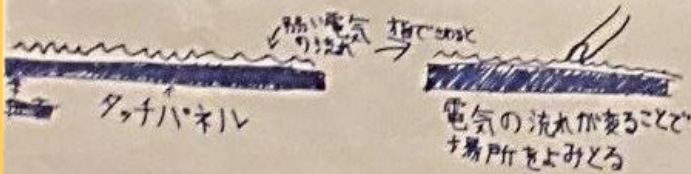 弱い電気
の流れ
指でさわると
タッチパネル
電気の流れが変ることで
場所をよみとる